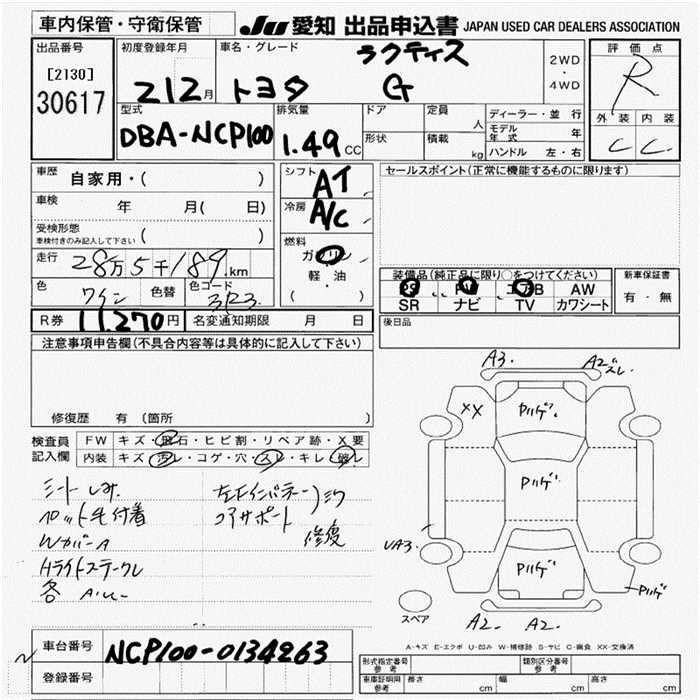 車内保管・守衛保管
JU 愛知 出品申込書 JAPAN USED CAR DEALERS ASSOCIATION
出品番号
[2130]
30617
初度登録年月
212月
車名・グレード
ラクティス
トヨタ G
2WD
・
4WD
評価点
R
外装 内装
C C
型式
DBA-NCP100
排気量
1.49cc
ドア
形状
定員 人
積載 kg
ディーラー・並行
モデル年式 年
ハンドル 左・右
車歴 自家用・( )
車検 年 月( 日)
受検形態
車検付きのみ記入して下さい ( )
走行 28万5千189km
色 ワイン 色替 色コード 3P3
R券 11,270円 名変通知期限 月 日
シフト AT
冷房 A/C
燃料
ガソリン
軽・油
( ・ )
セールスポイント(正常に機能するものに限ります)
装備品(純正品に限り○をつけてください)
PS PW エアB AW
SR ナビ TV カワシート
新車保証書
有・無
後日品
注意事項申告欄(不具合内容等は具体的に記入して下さい)
修復歴 有(箇所
検査員
記入欄
FW キズ・飛石・ヒビ割・リペア跡・X要
内装 キズ・汚レ・コゲ・穴・スレ・キレ・破レ
シートしみ
毛付着
WカバーA
Hライトステークレ
各
左Fインパネ
コアサポート
修復
A3.
A2
XX
Pハゲ
Pハゲ
Pハゲ
UA3.
Pハゲ
スペア
A2 A2.
A-キズ E-エクボ U-凹み W-補修跡 S-サビ C-腐食 XX-交換済
車台番号 NCP100-0134263
登録番号
形式指定番号
参考
類別区分番号
参考
車庫証明用
参考
長さ cm 幅 cm 高さ cm